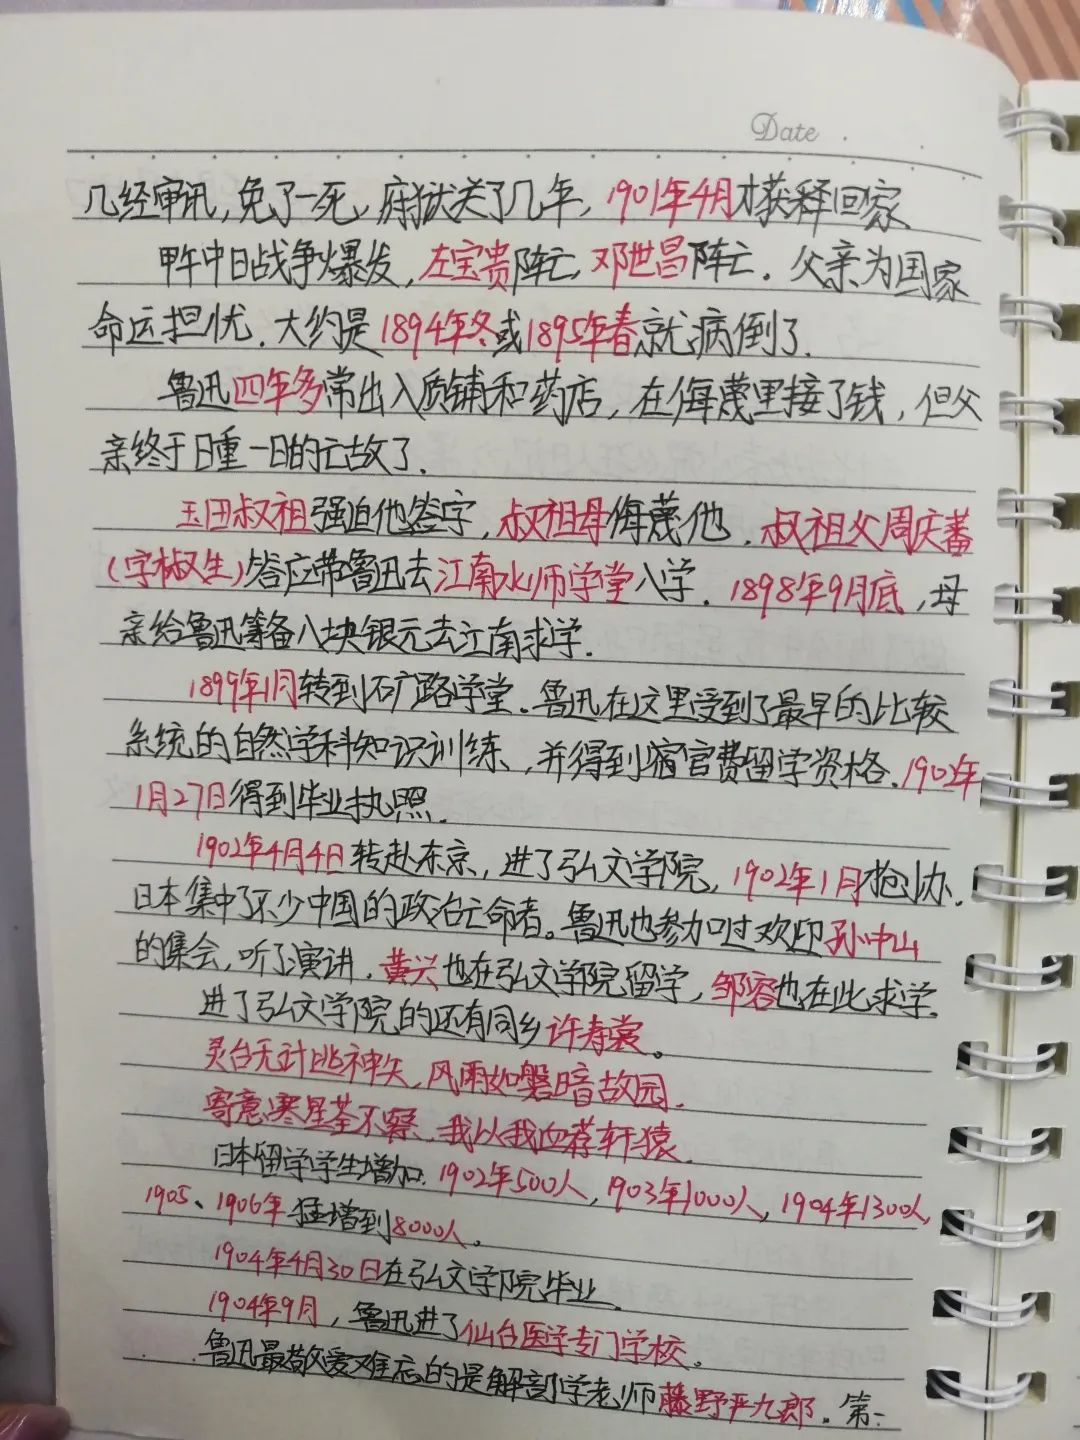 Date
几经审讯,免了一死,府狱关了几年,1901年4月才获释回家
甲午中日战争爆发,左宝贵阵亡,邓世昌阵亡.父亲为国家
命运担忧.大约是1894年冬或1895年春就病倒了.
鲁迅四年多常出入质铺和药店,在侮蔑里接了钱,但父
亲终于日重一日的亡故了.
玉田叔祖强迫他签字,叔祖母侮蔑他,叔祖父周庆蕃
(字椒生)答应带鲁迅去江南水师学堂入学.1898年9月底,母
亲给鲁迅筹备八块银元去江南求学.
1899年1月转到矿路学堂.鲁迅在这里受到了最早的比较
系统的自然学科知识训练,并得到官费留学资格.1902年
1月27日得到毕业执照.
1902年4月4日转赴东京,进了弘文学院,1902年1月抢办.
日本集中了不少中国的政治亡命者。鲁迅也参加过欢迎孙中山
的集会,听了演讲.黄兴也在弘文学院留学,邹容也在此求学.
进了弘文学院的还有同乡许寿裳。
灵台无计逃神矢,风雨如磐暗故园.
寄意寒星荃不察,我以我血荐轩猿.
日本留学学生增加.1902年500人,1903年1000人,1904年1300人,
1905、1906年猛增到8000人。
1904年4月30日在弘文学院毕业.
1904年9月,鲁迅进了仙台医学专门学校。
鲁迅最敬爱难忘的是解剖学老师藤野严九郎.第一